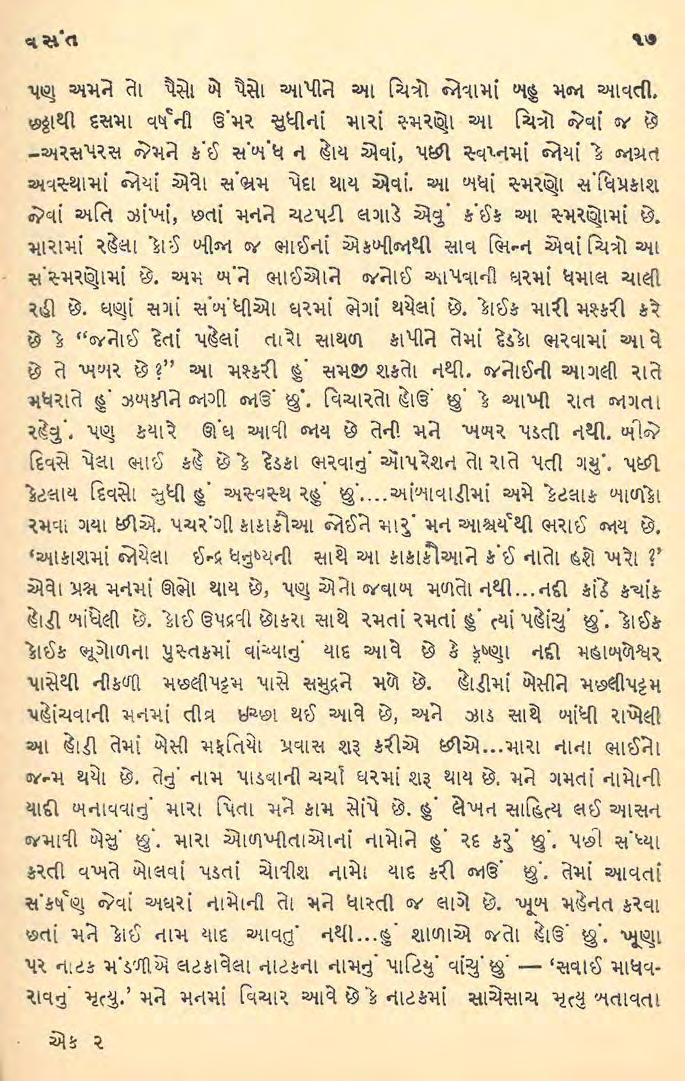 વસંત ૧૭
પણ અમને તો પૈસો બે પૈસો આપીને આ ચિત્રો જોવામાં બહુ મજા આવતી.
છઠ્ઠાથી દસમા વર્ષની ઉંમર સુધીનાં મારાં સ્મરણો આ ચિત્રો જેવાં જ છે
–અરસપરસ જેમને કંઈ સંબંધ ન હોય એવાં, પછી સ્વપ્નમાં જોયાં કે જાગ્રત
અવસ્થામાં જોયાં એવો સંભ્રમ પેદા થાય એવાં. આ બધાં સ્મરણો સંધિપ્રકાશ
જેવાં અતિ ઝાંખાં, છતાં મનને ચટપટી લગાડે એવું કંઈક આ સ્મરણોમાં છે.
મારામાં રહેલા કોઈ બીજા જ ભાઈનાં એકબીજાથી સાવ ભિન્ન એવાં ચિત્રો આ
સંસ્મરણોમાં છે. અમ બંને ભાઈઓને જનોઈ આપવાની ઘરમાં ધમાલ ચાલી
રહી છે. ઘણાં સગાં સંબંધીઓ ઘરમાં ભેગાં થયેલાં છે. કોઈક મારી મશ્કરી કરે
છે કે “જનોઈ દેતાં પહેલાં તારો સાથળ કાપીને તેમાં દેડકો ભરવામાં આવે
છે તે ખબર છે ?” આ મશ્કરી હું સમજી શકતો નથી. જનોઈની આગલી રાતે
મધરાતે હું ઝબકીને જાગી જાઉં છું. વિચારતો હોઉં છું કે આખી રાત જાગતા
રહેવું. પણ કયારે ઊંઘ આવી જાય છે તેની મને ખબર પડતી નથી. બીજે
દિવસે પેલા ભાઈ કહે છે કે દેડકા ભરવાનું ઑપરેશન તો રાતે પતી ગયું. પછી
કેટલાય દિવસો સુધી હું અસ્વસ્થ રહું છું....આંબાવાડીમાં અમે કેટલાક બાળકો
રમવા ગયા છીએ. પચરંગી કાકાકૌઆ જોઈને મારું મન આશ્ચર્યથી ભરાઈ જાય છે.
‘આકાશમાં જોયેલા ઈન્દ્રધનુષ્યની સાથે આ કાકાકૌઆને કંઈ નાતો હશે ખરો ?’
એવો પ્રશ્ન મનમાં ઊભો થાય છે, પણ એનો જવાબ મળતો નથી...નદી કાંઠે કયાંક
હોડી બાંધેલી છે. કોઈ ઉપદ્રવી છોકરા સાથે રમતાં રમતાં હું ત્યાં પહોંચું છું. કોઈક
કોઈક ભૂગોળના પુસ્તકમાં વાંચ્યાનું યાદ આવે છે કે કૃષ્ણા નદી મહાબળેશ્વર
પાસેથી નીકળી મછલીપટ્ટમ પાસે સમુદ્રને મળે છે. હોડીમાં બેસીને મછલીપટ્ટમ
પહોંચવાની મનમાં તીવ્ર ઇચ્છા થઈ આવે છે, અને ઝાડ સાથે બાંધી રાખેલી
આ હોડી તેમાં બેસી મફતિયો પ્રવાસ શરૂ કરીએ છીએ...મારા નાના ભાઈનો
જન્મ થયો છે. તેનું નામ પાડવાની ચર્ચા ઘરમાં શરૂ થાય છે. મને ગમતાં નામોની
યાદી બનાવવાનું મારા પિતા મને કામ સોંપે છે. હું લેખન સાહિત્ય લઈ આસન
જમાવી બેસું છું. મારા ઓળખીતાઓનાં નામોને હું રદ કરું છું. પછી સંધ્યા
કરતી વખતે બોલવાં પડતાં ચોવીશ નામો યાદ કરી જાઉં છું. તેમાં આવતાં
સંકર્ષણ જેવાં અઘરાં નામોની તો મને ધાસ્તી જ લાગે છે. ખૂબ મહેનત કરવા
છતાં મને કોઈ નામ યાદ આવતું નથી...હું શાળાએ જતો હોઉં છું. ખૂણા
પર નાટક મંડળીએ લટકાવેલા નાટકના નામનું પાટિયું વાંચું છું — ‘સવાઈ માધવ-
રાવનું મૃત્યુ.’ મને મનમાં વિચાર આવે છે કે નાટકમાં સાચેસાચ મૃત્યુ બતાવતા
એક ૨